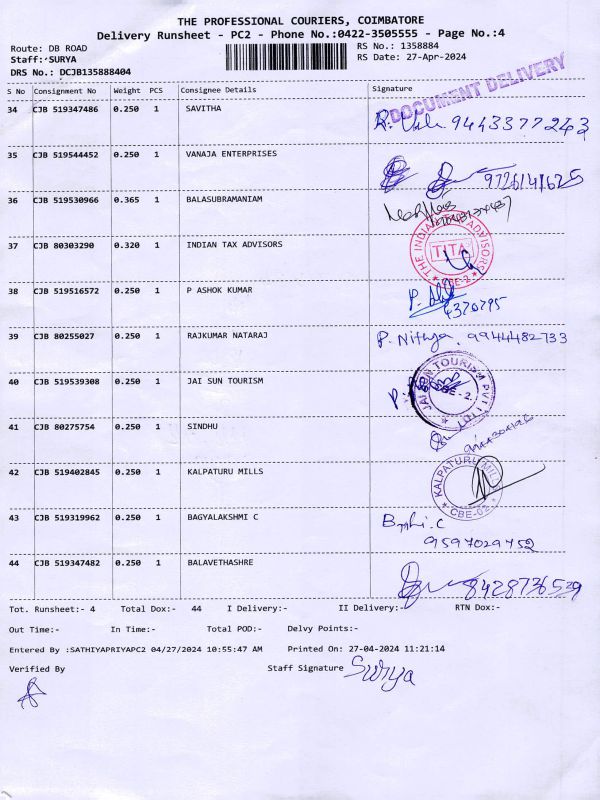 THE PROFESSIONAL COURIERS, COIMBATORE
Delivery Runsheet - PC2 - Phone No.:0422-3505555 - Page No.:4
Route: DB ROAD
RS No.: 1358884
Staff: SURYA
RS Date: 27-Apr-2024
DRS No.: DCJB135888404
DOCUMENT DELIVERY
S No Consignment No Weight PCS Consignee Details Signature
34 CJB 519347486 0.250 1 SAVITHA 9443377243
35 CJB 519544452 0.250 1 VANAJA ENTERPRISES 9726141625
36 CJB 519530966 0.365 1 BALASUBRAMANIAM
37 CJB 80303290 0.320 1 INDIAN TAX ADVISORS THE INDIAN TAX ADVISORS TITA CBE-2.
38 CJB 519516572 0.250 1 P ASHOK KUMAR 4370795
39 CJB 80255027 0.250 1 RAJKUMAR NATARAJ P. Nithya. 9944482733
40 CJB 519539308 0.250 1 JAI SUN TOURISM JAI SUN TOURISM PVT LTD CBE - 2.
41 CJB 80275754 0.250 1 SINDHU
42 CJB 519402845 0.250 1 KALPATURU MILLS KALPATURU MILLS CBE-02
43 CJB 519319962 0.250 1 BAGYALAKSHMI C
9597029752
44 CJB 519347482 0.250 1 BALAVETHASHRE 8428736539
Tot. Runsheet:- 4 Total Dox:- 44 I Delivery:- II Delivery:- RTN Dox:-
Out Time:- In Time:- Total POD:- Delvy Points:-
Entered By :SATHIYAPRIYAPC2 04/27/2024 10:55:47 AM Printed On: 27-04-2024 11:21:14
Verified By Staff Signature Surya